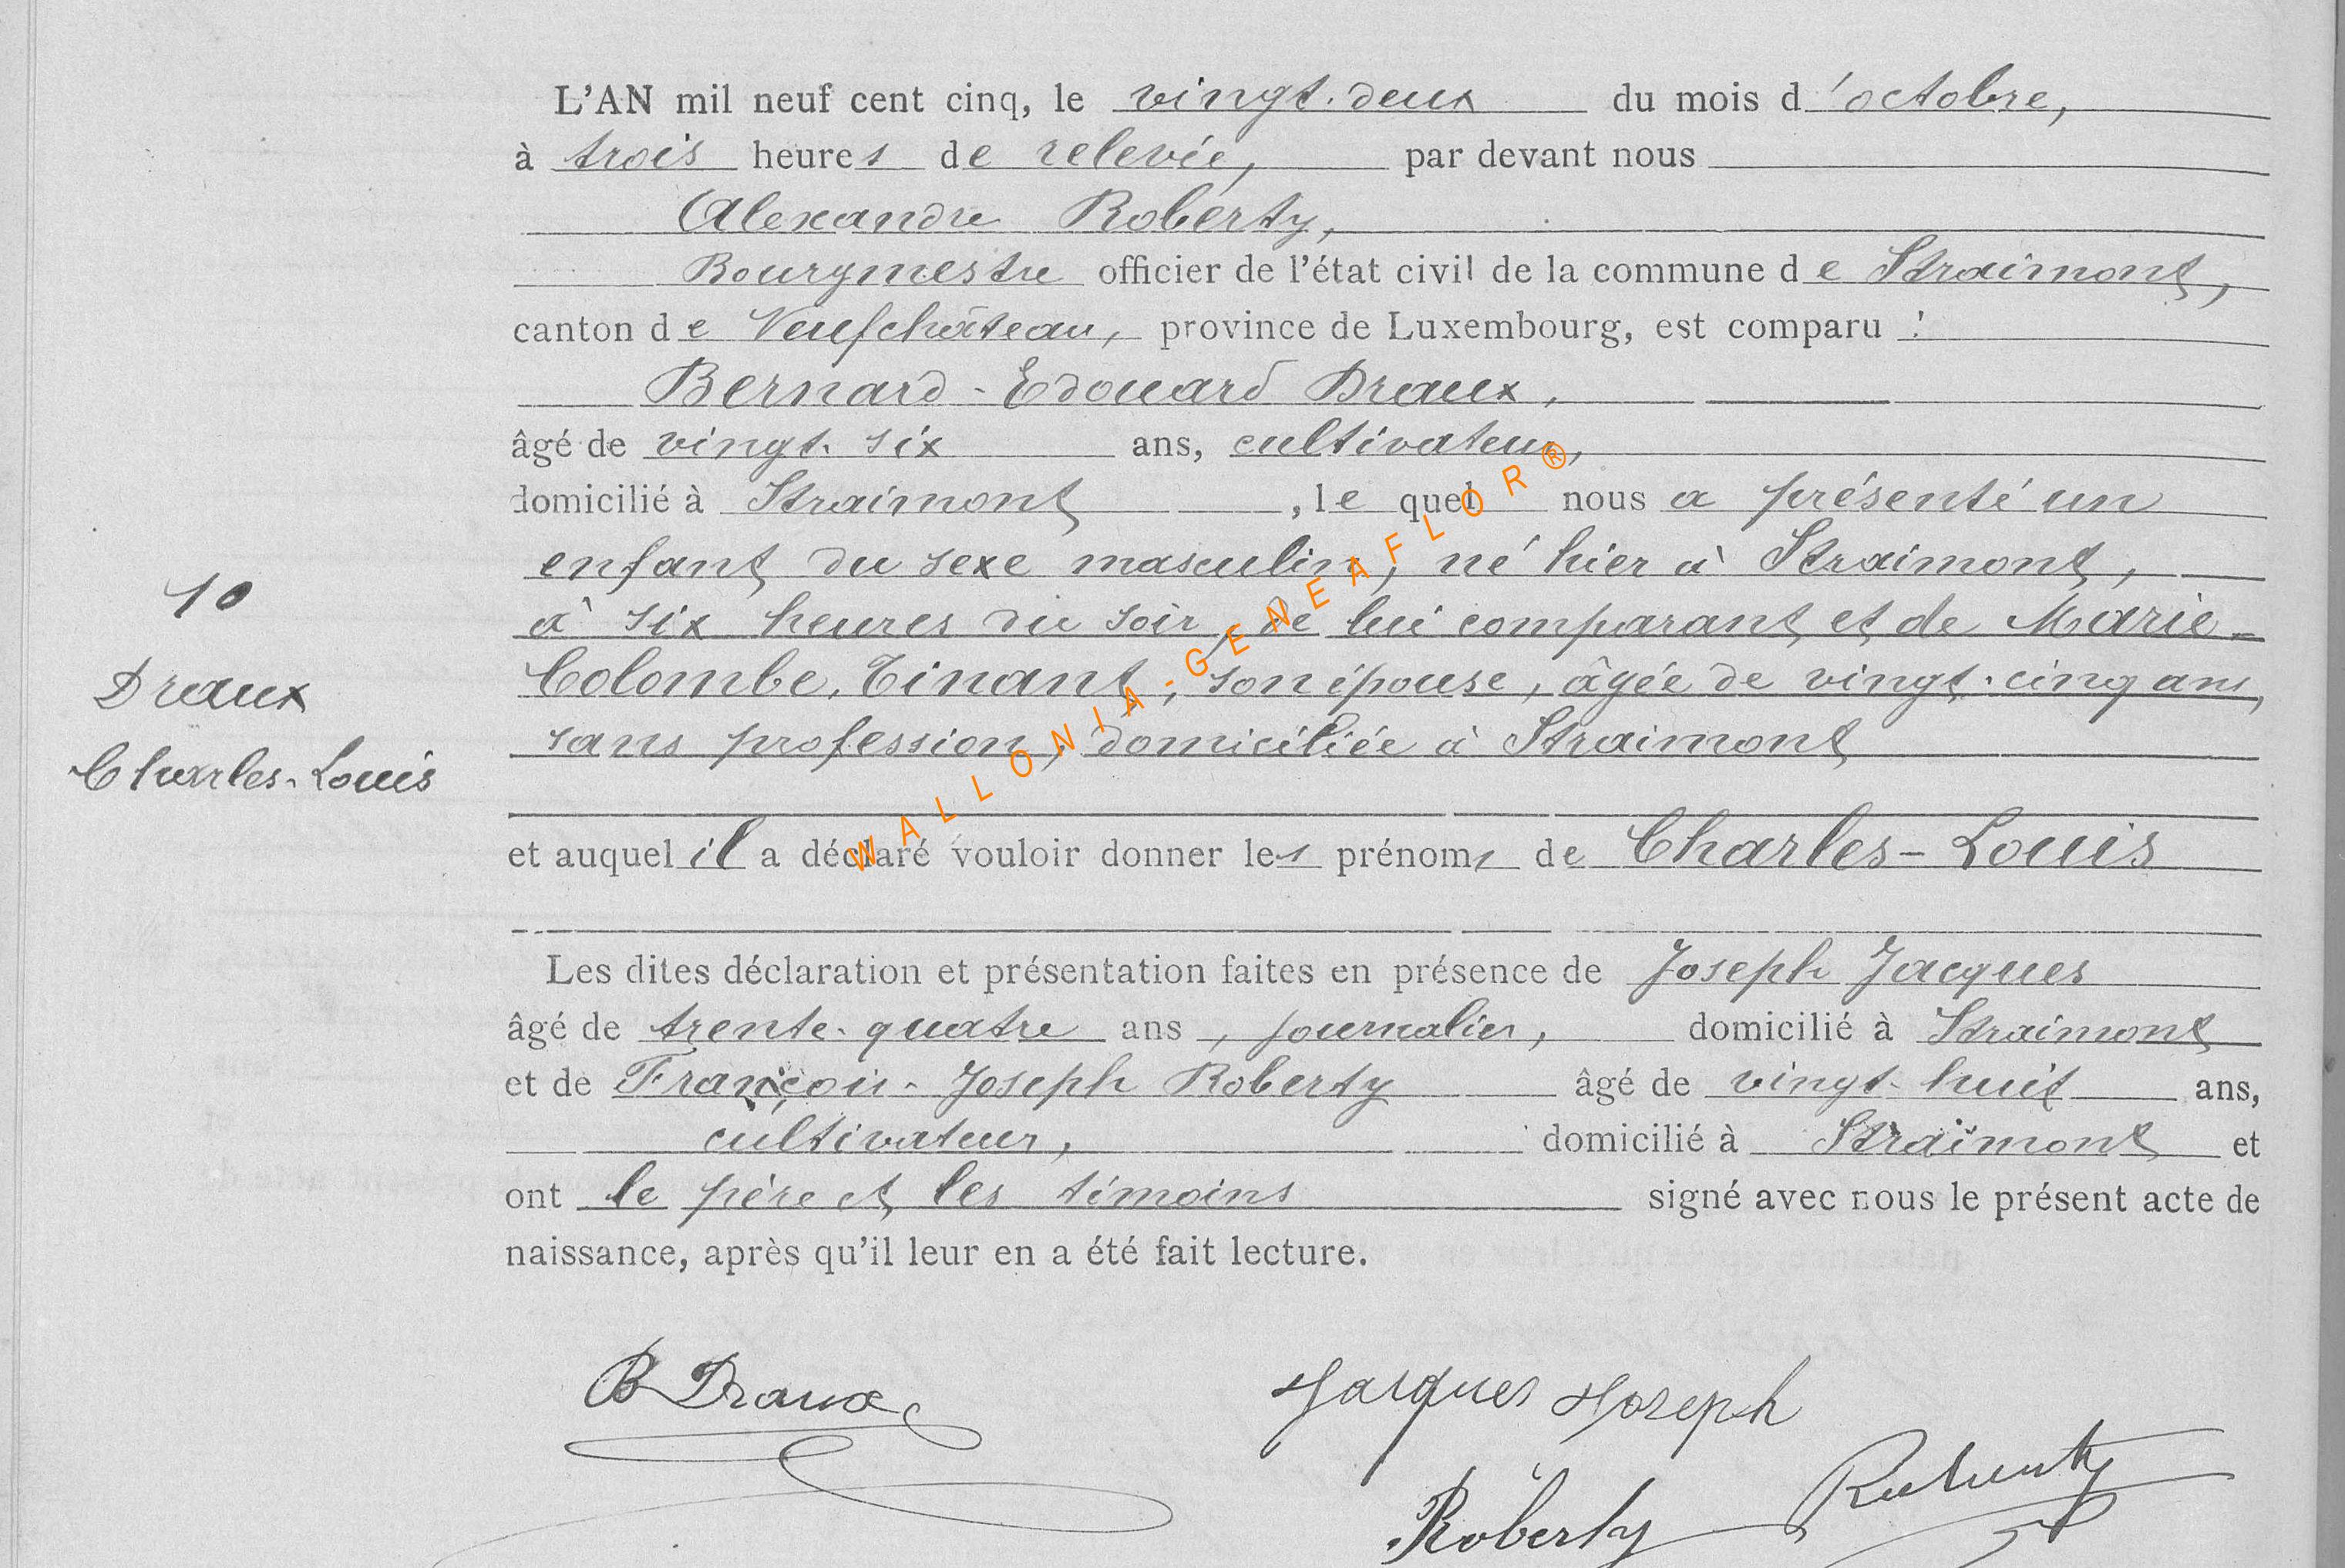 L'AN mil neuf cent cinq, le vingt-deux du mois d'octobre,
à trois heures de relevée, par devant nous
Alexandre Roberty,
Bourgmestre officier de l'état civil de la commune de Straimont,
canton de Neufchâteau, province de Luxembourg, est comparu :
Bernard-Edouard Draux,
âgé de vingt-six ans, cultivateur,
domicilié à Straimont, lequel nous a présenté un
enfant du sexe masculin, né hier à Straimont,
à six heures du soir, de lui comparant et de Marie-
Colombe Tinant, son épouse, âgée de vingt-cinq ans,
sans profession, domiciliée à Straimont
10
Draux
Charles-Louis
et auquel il a déclaré vouloir donner les prénoms de Charles-Louis
Les dites déclaration et présentation faites en présence de Joseph Jacques
âgé de trente-quatre ans, journalier, domicilié à Straimont
et de François-Joseph Roberty âgé de vingt-huit ans,
cultivateur, domicilié à Straimont et
ont le père et les témoins signé avec nous le présent acte de
naissance, après qu'il leur en a été fait lecture.
B Draux
Jacques Joseph
Roberty Roberty
WALLONIA-GENEAFLOR®